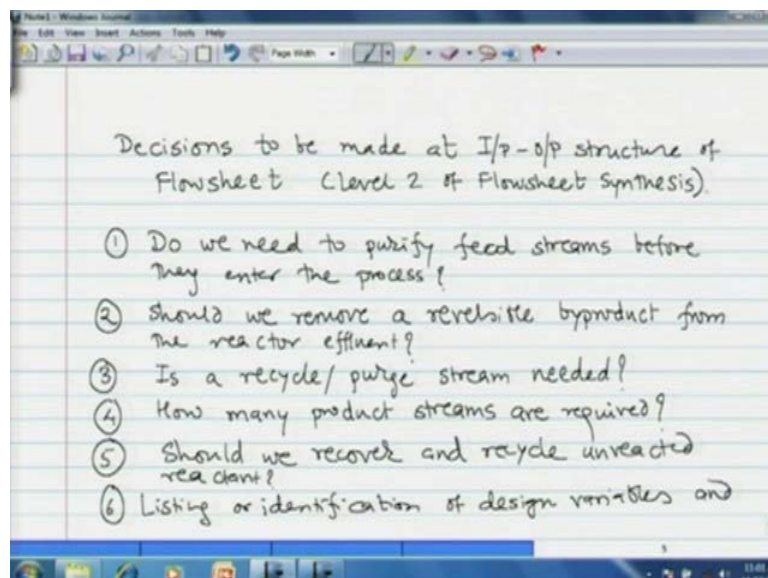 Note1 - Windows Journal
File Edit View Insert Actions Tools Help
Page Width
Decisions to be made at I/P - O/P structure of
Flowsheet (Level 2 of Flowsheet Synthesis).
① Do we need to purify feed streams before
they enter the process?
② Should we remove a reversible byproduct from
the reactor effluent?
③ Is a recycle/ purge stream needed?
④ How many product streams are required?
⑤ Should we recover and recycle unreacted
reactant?
⑥ Listing or identification of design variables and
11:01